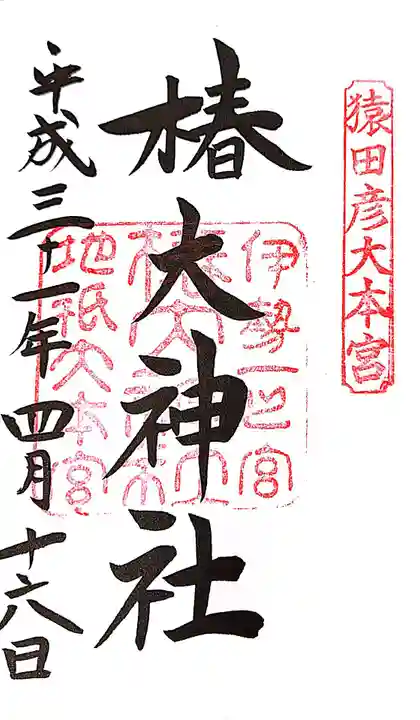 猿田彦大本宮
伊勢一之宮
椿大神社
地祇大本宮
椿大神社
平成三十一年四月十六日